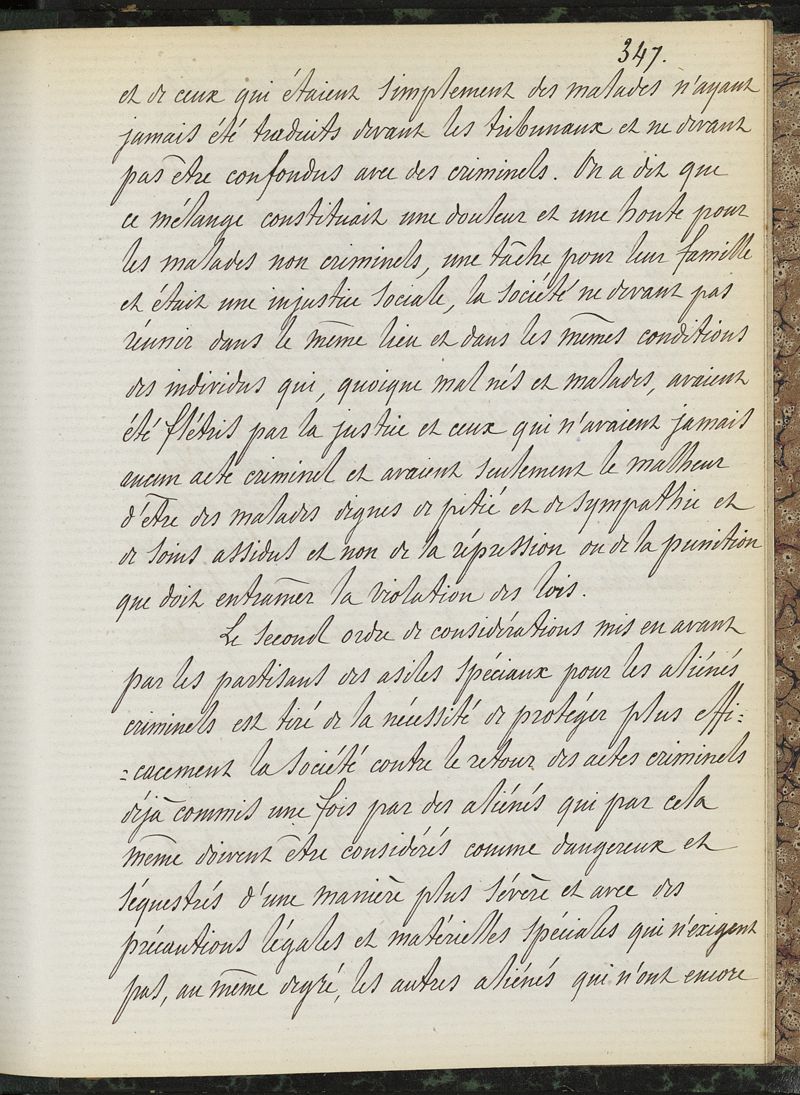 347.
et de ceux qui étaient simplement des malades n'ayant
jamais été traduits devant les tribunaux et ne devant
pas être confondus avec des criminels. On a dit que
ce mélange constituait une douleur et une honte pour
les malades non criminels, une tâche pour leur famille
et était une injustice sociale, la société ne devant pas
réunir dans le même lieu et dans les mêmes conditions
des individus qui, quoique mal nés et malades, avaient
été flétris par la justice et ceux qui n'avaient jamais
aucun acte criminel et avaient seulement le malheur
d'être des malades dignes de pitié et de sympathie et
de soins assidus et non de la répression ou de la punition
que doit entraîner la violation des lois.
Le second ordre de considérations mis en avant
par les partisans des asiles spéciaux pour les aliénés
criminels est tiré de la nécessité de protéger plus effi=
=cacement la société contre le retour des actes criminels
déjà commis une fois par des aliénés qui par cela
même doivent être considérés comme dangereux et
séquestrés d'une manière plus sévère et avec des
précautions légales et matérielles spéciales qui n'exigent
pas, au même degré, les autres aliénés qui n'ont encore